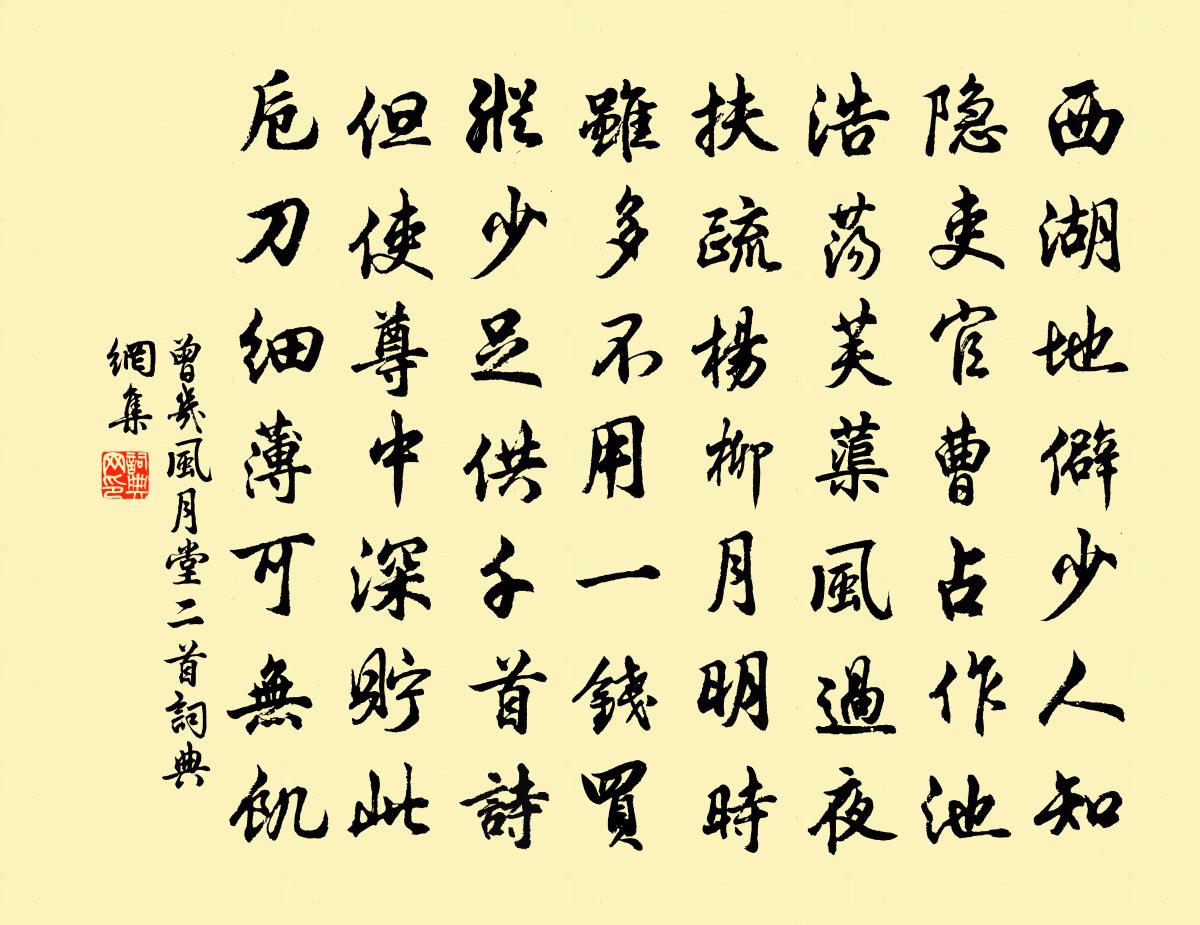 西湖地僻少人知
隐吏官曹占作池
浩荡芙蕖風過夜
扶疏楊柳月明時
雖多不用一錢買
縱少足供千首詩
但使尊中深貯此
卮刀细薄可無飢
曾幾風月堂二首詞典
網集
詞典
网印